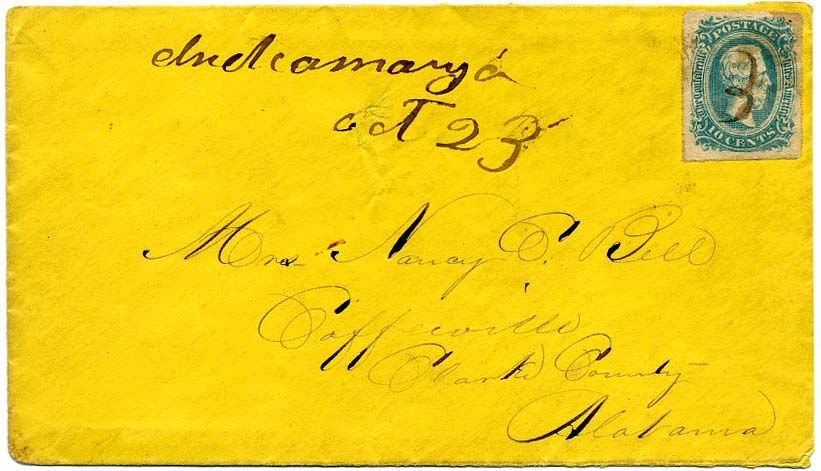 Oct 23
POSTAGE
The Confederate States of America
10 CENTS
3
Mrs. Nancy C. Bell
Coffeeville
Clarke County
Alabama